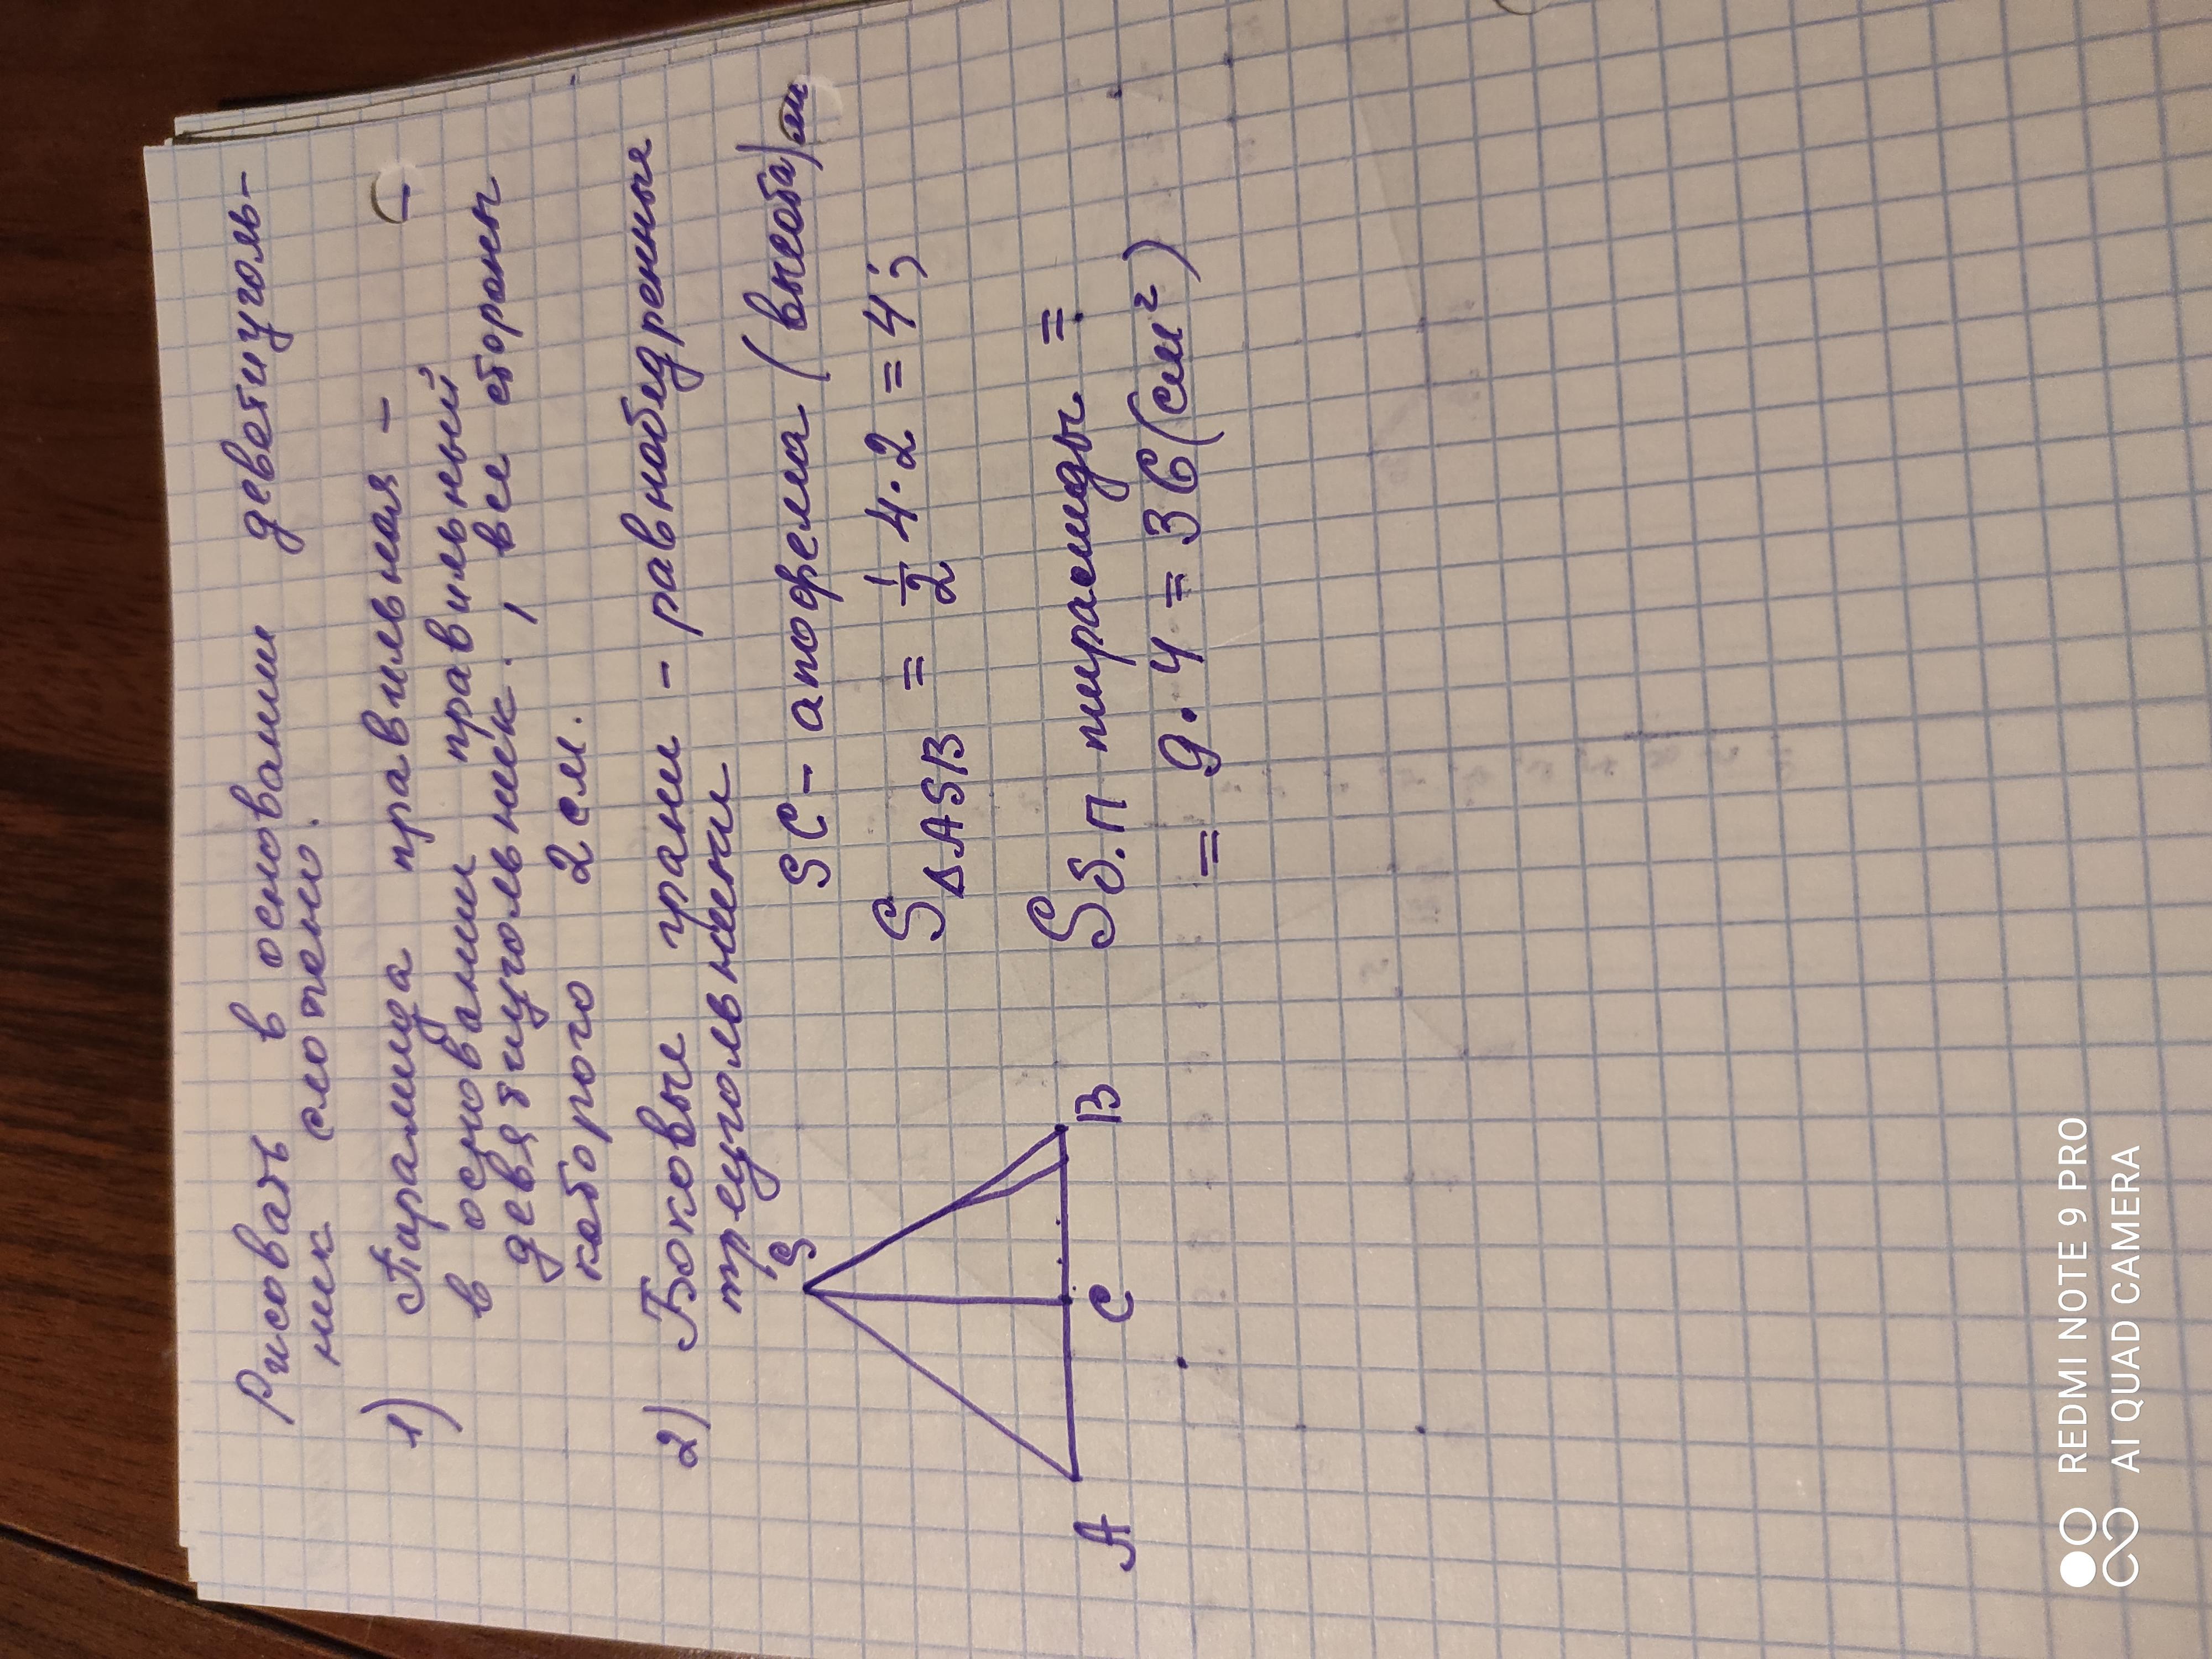 Рисовать в основании девятиуголь-
ник смотено.
1) Пирамида правильная -
в основании правильный
девятиугольник, все стороны
которого 2 см.
2) Боковые грани - равнобедренные
треугольники
S
SC - апофема (высота)
S ΔASB = 1/2 4 · 2 = 4;
S б.п пирамиды =
= 9 · 4 = 36 (см²)
A C B
REDMI NOTE 9 PRO
AI QUAD CAMERA